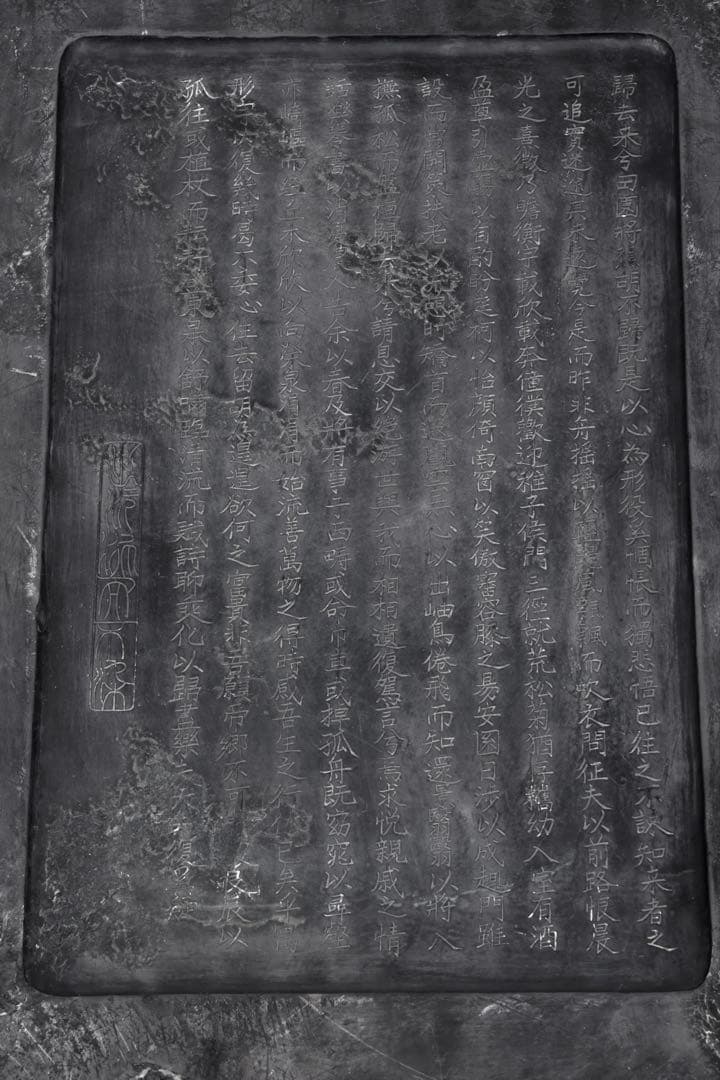 歸去来兮田園將蕪胡不歸既是以心為形役奚惆悵而獨悲悟已往之不諫知来者之
可追實迷途其未遠覺今是而昨非舟搖搖以輕颺風飄飄而吹衣問征夫以前路恨晨
光之熹微乃瞻衡宇載欣載奔僮僕歡迎稚子候門三徑就荒松菊猶存攜幼入室有酒
盈樽引壺觴以自酌眄庭柯以怡顏倚南窗以笑傲審容膝之易安園日涉以成趣門雖
設而常關策扶老以流憩時矯首而遐觀雲無心以出岫鳥倦飛而知還景翳翳以將入
撫孤松而盤桓歸去来兮請息交以絶游世與我而相相遺復駕言兮焉求悦親戚之情
話樂琴書以消人告余以春及將有事于西疇或命巾車或棹孤舟既窈窕以尋壑
亦崎嶇而經丘木欣欣以向榮泉涓涓而始流善萬物之得時感吾生之行休已矣乎寓
形宇内復幾時曷不委心任去留胡為遑遑欲何之富貴非吾願帝鄉不可良辰以
孤往或植杖而耘耔登東皋以舒嘯臨清流而賦詩聊乘化以歸盡樂夫天復奚疑